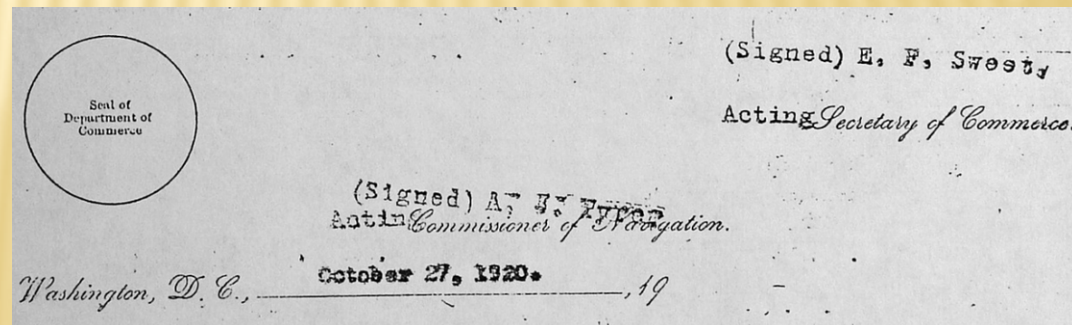 (Signed) E. F. Sweet,
Seal of
Department of
Commerce
Acting Secretary of Commerce.
(Signed) A. J. Tyrer
Acting Commissioner of Navigation.
Washington, D. C., October 27, 1920. , 19